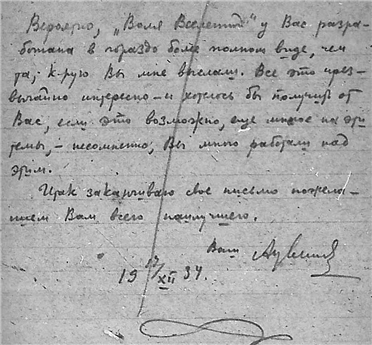 Вероятно, „Воля Вселенной" у Вас разра-
ботана в гораздо более полном виде, чем
та, к-рую Вы мне выслали. Все это чрез-
вычайно интересно – и хотелось бы получить от
Вас, если это возможно, еще многое на эти
темы, – несомненно, Вы много работали над
этим.
Итак заканчиваю свое письмо пожела-
нием Вам всего наилучшего.
Ваш
19 17/XII 34.